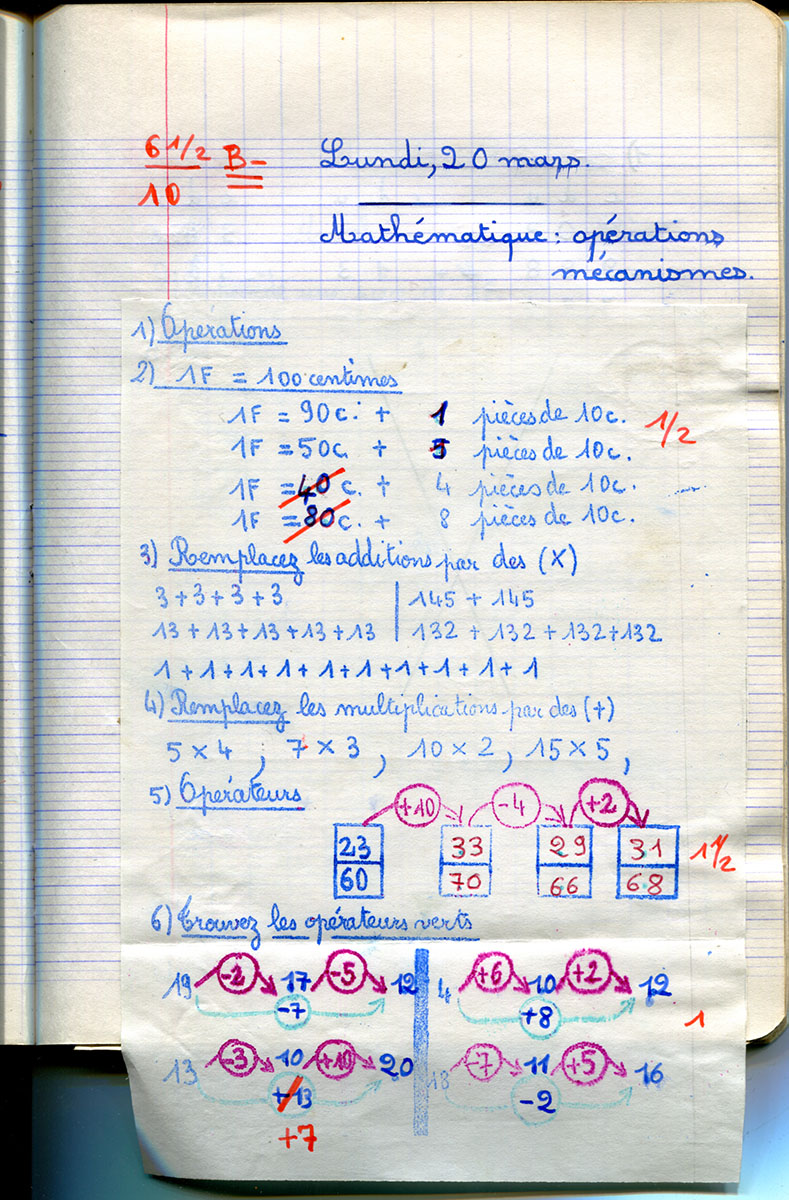 6 1/2 B- Lundi, 20 mars.
10
Mathématique : opérations
mécanismes.
1) Opérations
2) 1F = 100 centimes
1F = 90c. + 1 pièces de 10c. 1/2
1F = 50c. + 5 pièces de 10c.
1F = 40 c. + 4 pièces de 10c.
1F = 80c. + 8 pièces de 10c.
3) Remplacez les additions par des (X)
3 + 3 + 3 + 3 | 145 + 145
13 + 13 + 13 + 13 + 13 | 132 + 132 + 132 + 132
1 + 1 + 1 + 1 + 1 + 1 + 1 + 1 + 1 + 1
4) Remplacez les multiplications par des (+)
5 × 4 ; 7 × 3 , 10 × 2 , 15 × 5 ,
5) Opérateurs +10 -4 +2
23 33 29 31 1 1/2
60 70 66 68
6) Trouvez les opérateurs verts
19 -2 17 -5 12 4 +6 10 +2 12
-7 +8
1
13 -3 10 +10 20 18 -7 11 +5 16
13 -2
+7